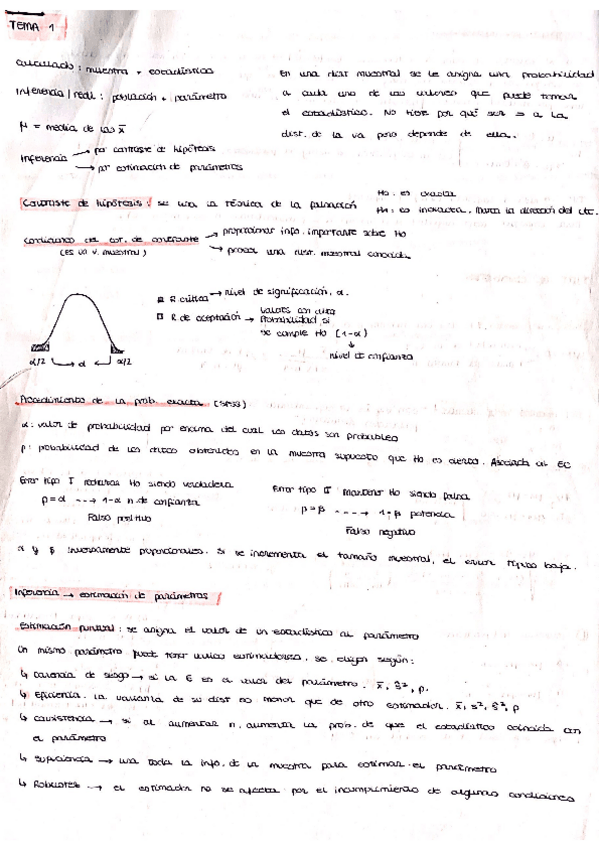 TEMA 1
calculado: muestra + estadístico
Inferencia / real: población + parámetro
μ = media de las x̄
Inferencia → por contraste de hipótesis
→ por estimación de parámetros
En una distr muestral se le asigna una probabilidad
a cada uno de los valores que puede tomar
el estadístico. No tiene por qué ser = a la
dist. de la va pero depende de ella.
Contraste de hipótesis: se usa la técnica de la falsación
Ho: es exacta
H1: es inexacta. Marca la dirección del ctc.
Condiciones del est. de contraste → proporcionar info. importante sobre Ho
(ES va v. muestral) → poseer una distr. muestral conocida
R. crítica → nivel de significación, α.
R de aceptación → valores con cierta
probabilidad si
se cumple Ho (1-α)
↓
nivel de confianza
α/2 α α/2
Procedimiento de la prob. exacta (SPSS)
α: valor de probabilidad por encima del cual los datos son probables
p: probabilidad de los datos obtenidos en la muestra supuesto que Ho es cierta. Asociada al EC
Error tipo I rechazar Ho siendo verdadera
p = α ---→ 1-α n. de confianza
Falso positivo
Error tipo II mantener Ho siendo falsa
p = β ----→ 1-β potencia
Falso negativo
α y β inversamente proporcionales. Si se incrementa el tamaño muestral, el error típico baja.
Inferencia → estimación de parámetros
Estimación puntual: se asigna el valor de un estadístico al parámetro
Un mismo parámetro puede tener varios estimadores, se eligen según:
↳ Carencia de sesgo → si la E es el valor del parámetro. x̄, ŝ², p.
↳ Eficiencia. La varianza de su dist no menor que de otro estimador. x̄, s², ŝ², p
↳ Consistencia → si al aumentar n, aumenta la prob. de que el estadístico coincida con
el parámetro
↳ Suficiencia → usa toda la info. de la muestra para estimar el parámetro
↳ Robustez → el estimador no se afecta por el incumplimiento de algunas condiciones